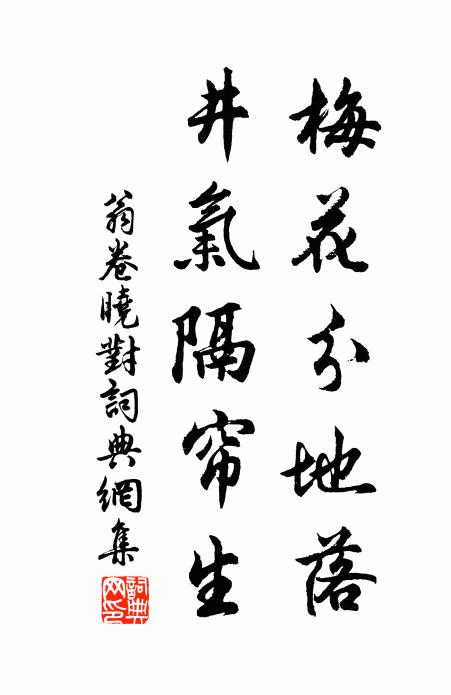 梅花分地落
井氣隔帘生
翁卷曉對詞典網集
詞典網印